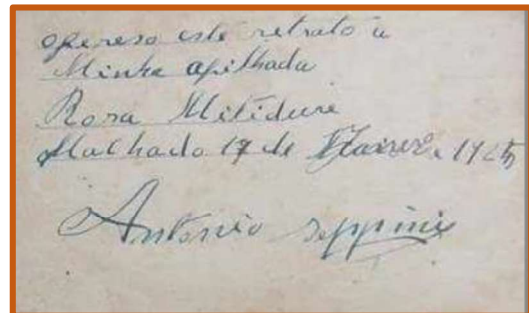 Ofereso este retrato a
Minha afilhada
Rosa Mitidieri
Machado 17 de 1925
Antonio Seppini